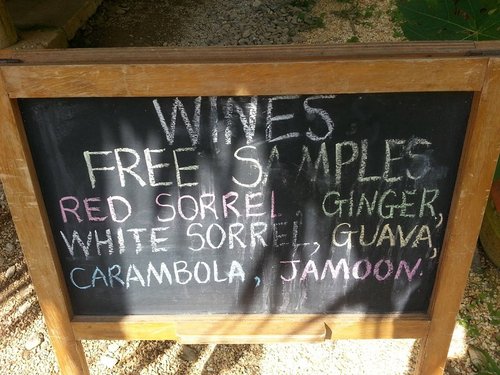 WINES
FREE SAMPLES
RED SORREL, GINGER,
WHITE SORREL, GUAVA,
CARAMBOLA, JAMOON.